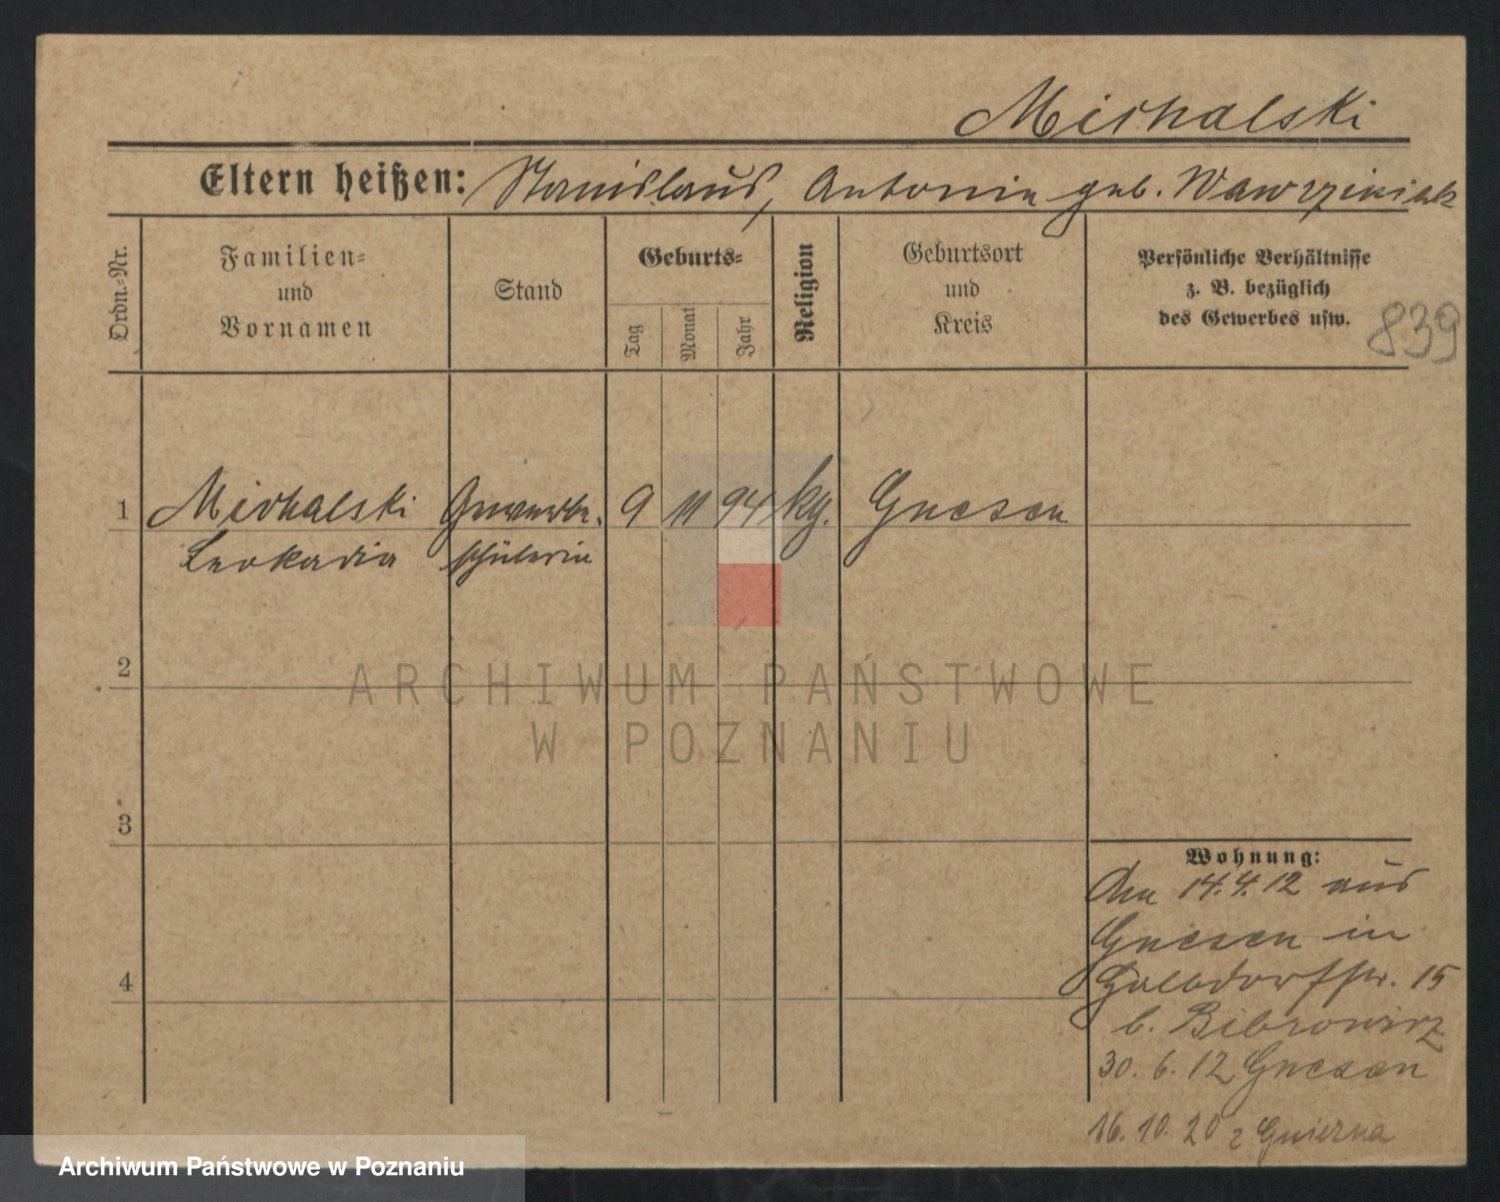 Michalski
Eltern heißen: Stanislaus, Antonie geb. Wawrziniak
Ordn.-Nr.
Familien-
und
Vornamen
Stand
Geburts-
Tag
Monat
Jahr
Religion
Geburtsort
und
Kreis
Persönliche Verhältnisse
z. B. bezüglich
des Gewerbes usw.
839
1 Michalski Gewerbe- 9 11 94 kg. Gnesen
Leokadia schülerin
2
ARCHIWUM PAŃSTWOWE
W POZNANIU
3
Wohnung:
den 14.4.12 aus
Gnesen in
15
b. Bibrowicz
4
30. 6. 12 Gnesen
16. 10. 20 z Gniezna
Archiwum Państwowe w Poznaniu